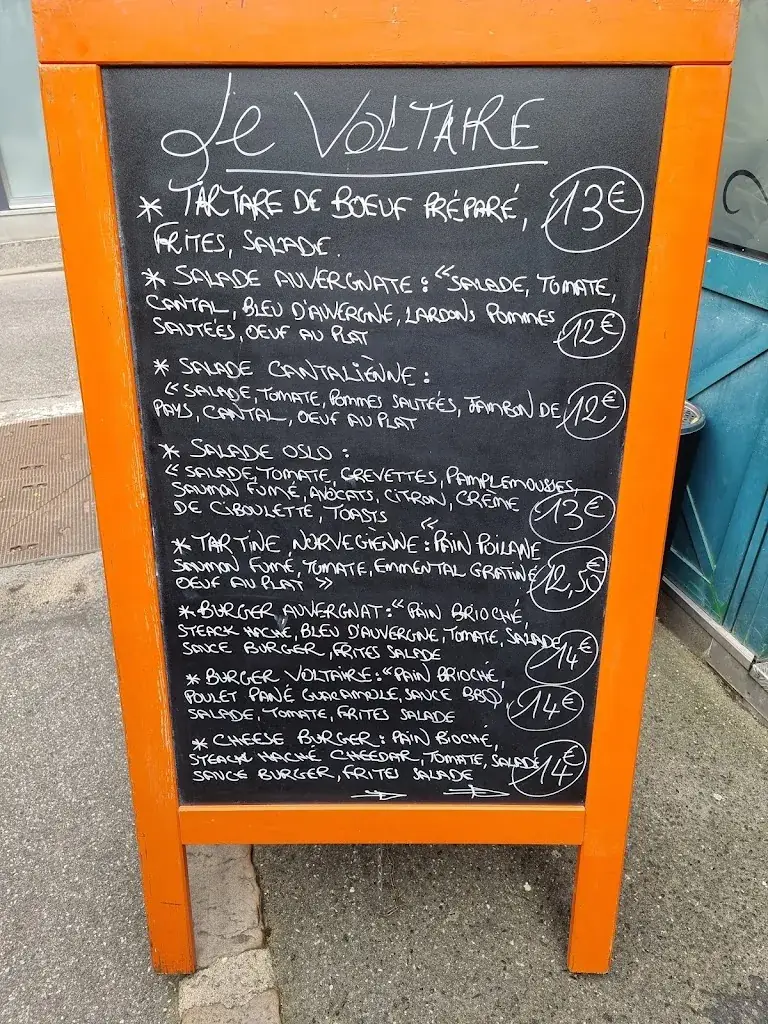 Le VOLTAIRE
* TARTARE DE BOEUF PRÉPARÉ, 13€
FRITES, SALADE.
* SALADE AUVERGNATE : "SALADE, TOMATE,
CANTAL, BLEU D'AUVERGNE, LARDONS POMMES
SAUTÉES, OEUF AU PLAT 12€
* SALADE CANTALIÈNNE :
"SALADE, TOMATE, POMMES SAUTEÉS, JAMBON DE
PAYS, CANTAL, OEUF AU PLAT 12€
* SALADE OSLO :
"SALADE, TOMATE, CREVETTES, PAMPLEMOUSSES,
SAUMON FUMÉ, AVOCATS, CITRON, CRÈME
DE CIBOULETTE, TOASTS 13€
* TARTINE NORVEGIENNE : "PAIN POILANE
SAUMON FUMÉ, TOMATE, EMMENTAL GRATINÉ
OEUF AU PLAT » 12,50€
* BURGER AUVERGNAT : "PAIN BRIOCHÉ,
STEACK HACHÉ, BLEU D'AUVERGNE, TOMATE, SALADE
SAUCE BURGER, FRITES SALADE 14€
* BURGER VOLTAIRE : "PAIN BRIOCHÉ,
POULET PANÉ GUACAMOLE, SAUCE BBQ,
SALADE, TOMATE, FRITES SALADE 14€
* CHEESE BURGER : PAIN BIOCHÉ,
STEACK HACHÉ CHEEDAR, TOMATE, SALADE
SAUCE BURGER, FRITES SALADE 14€